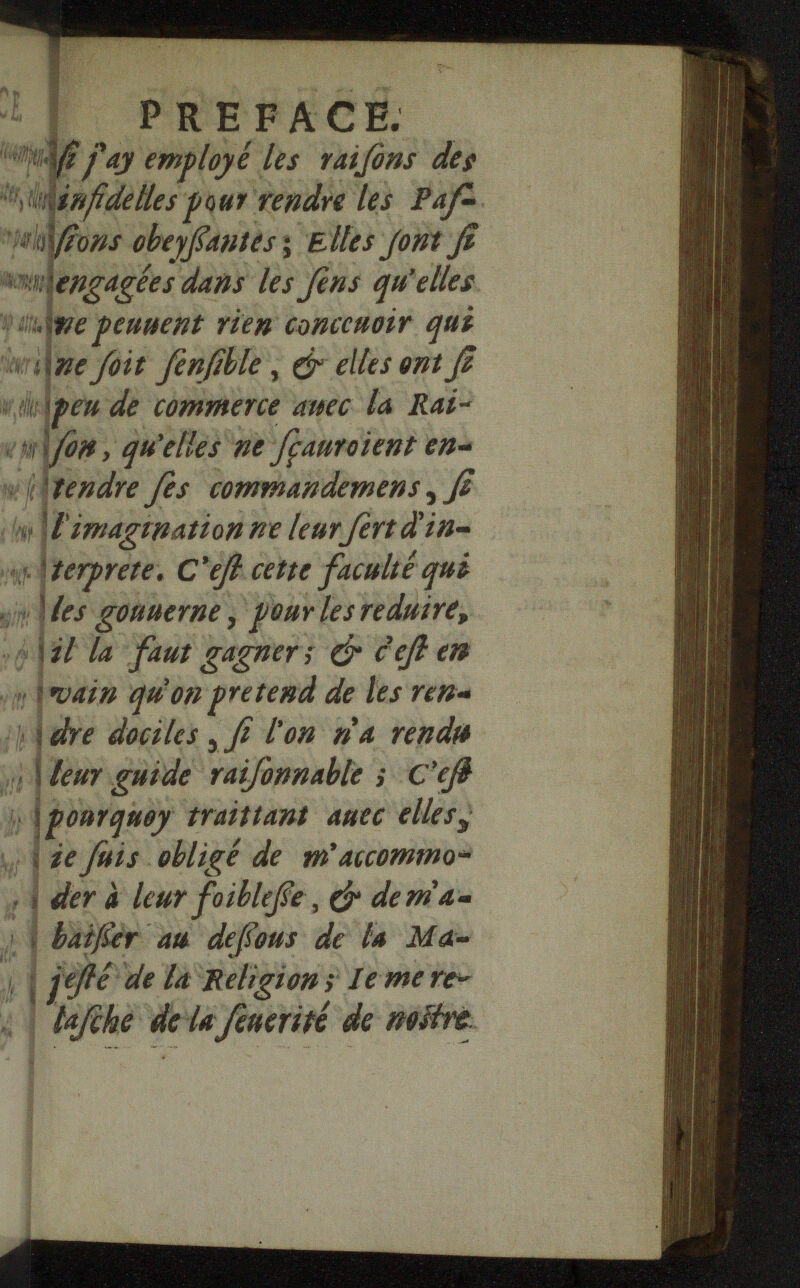 PREFACE.
ſi j'ay employé les raiſons des
infidelles pour rendre les Paſ-
ſions obeyſſantes; Elles ſont ſi
engagées dans les ſens qu'elles
ne peuuent rien conceuoir qui
ne ſoit ſenſible, & elles ont ſi
peu de commerce auec la Rai-
ſon, qu'elles ne ſçauroient en-
tendre ſes commandemens, ſi
l'imagination ne leur ſert d'in-
terprete. C'eſt cette faculté qui
les gouuerne, pour les reduire,
il la faut gagner; & c'eſt en
vain qu'on pretend de les ren-
dre dociles, ſi l'on n'a rendu
leur guide raiſonnable; C'eſt
pourquoy traittant auec elles,
ie ſuis obligé de m'accommo-
der à leur foibleſſe, & de m'a-
baiſſer au deſſous de la Ma-
jeſté de la Religion; Ie me re-
laſche de la ſeuerité de noſtre